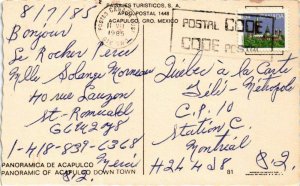 8/7/85
PAISAJES TURISTICOS, S. A.
APDO. POSTAL 1448
ACAPULCO, GRO. MEXICO
1985
POSTAL CODE
CODE POSTAL
Bonjour
Le Rocher Percé
Mlle Solange Morneau
40 rue Lauzon
St-Romuald
G6W 2Y8
1-418-839-6368
Merci
P.Q.
Québec à la Carte
Télé-Métropole
C.P. 10
Station C.
Montréal
H2L 4J8
P.Q.
PANORAMICA DE ACAPULCO
PANORAMIC OF ACAPULCO DOWN TOWN
81